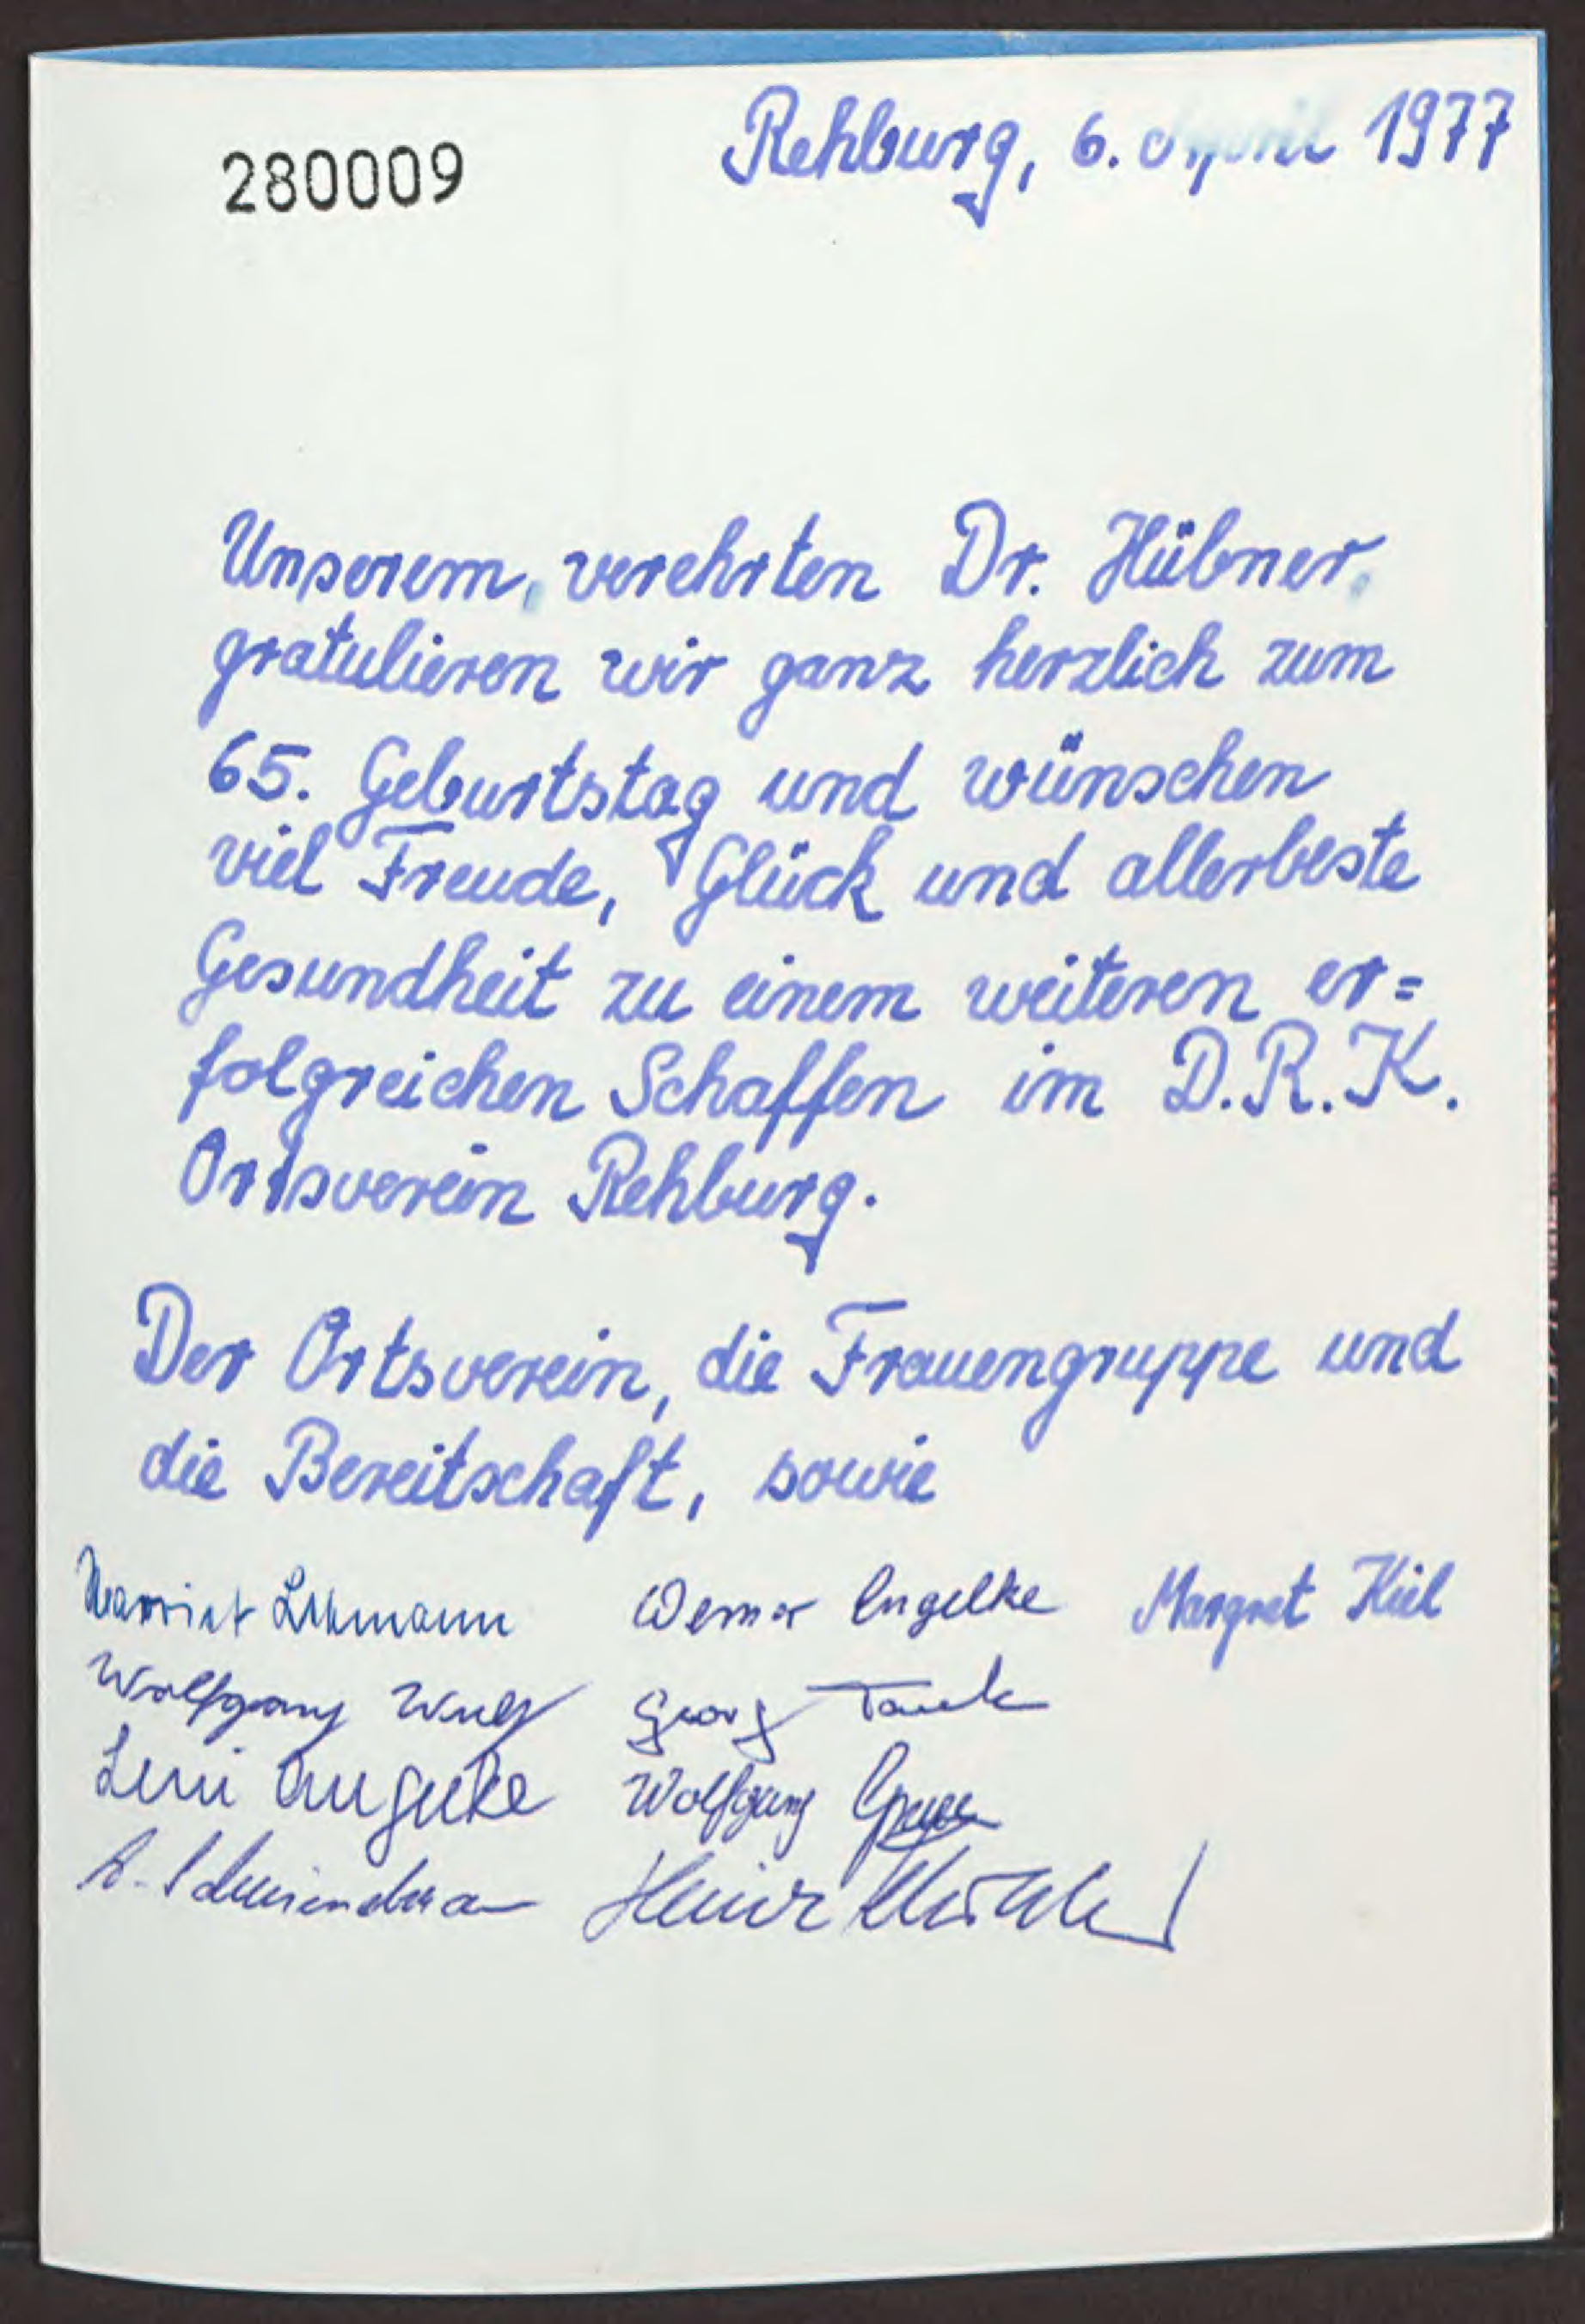 280009
Rehburg, 6. April 1977
Unserem verehrten Dr. Hübner
gratulieren wir ganz herzlich zum
65. Geburtstag und wünschen
viel Freude, Glück und allerbeste
Gesundheit zu einem weiteren er=
folgreichen Schaffen im D.R.K.
Ortsverein Rehburg.
Der Ortsverein, die Frauengruppe und
die Bereitschaft, sowie
Werner Engelke Margret Kiel
Wolfgang Georg
Leni Engelke Wolfgang
Heinz